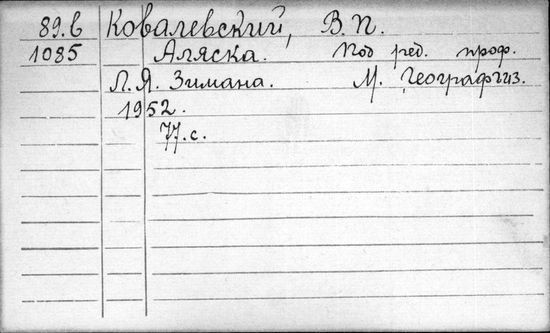 89.в Ковалевский, В.П.
1085 Аляска. Под ред. проф.
Л.Я. Зимана. М. Географгиз.
1952.
77.с.